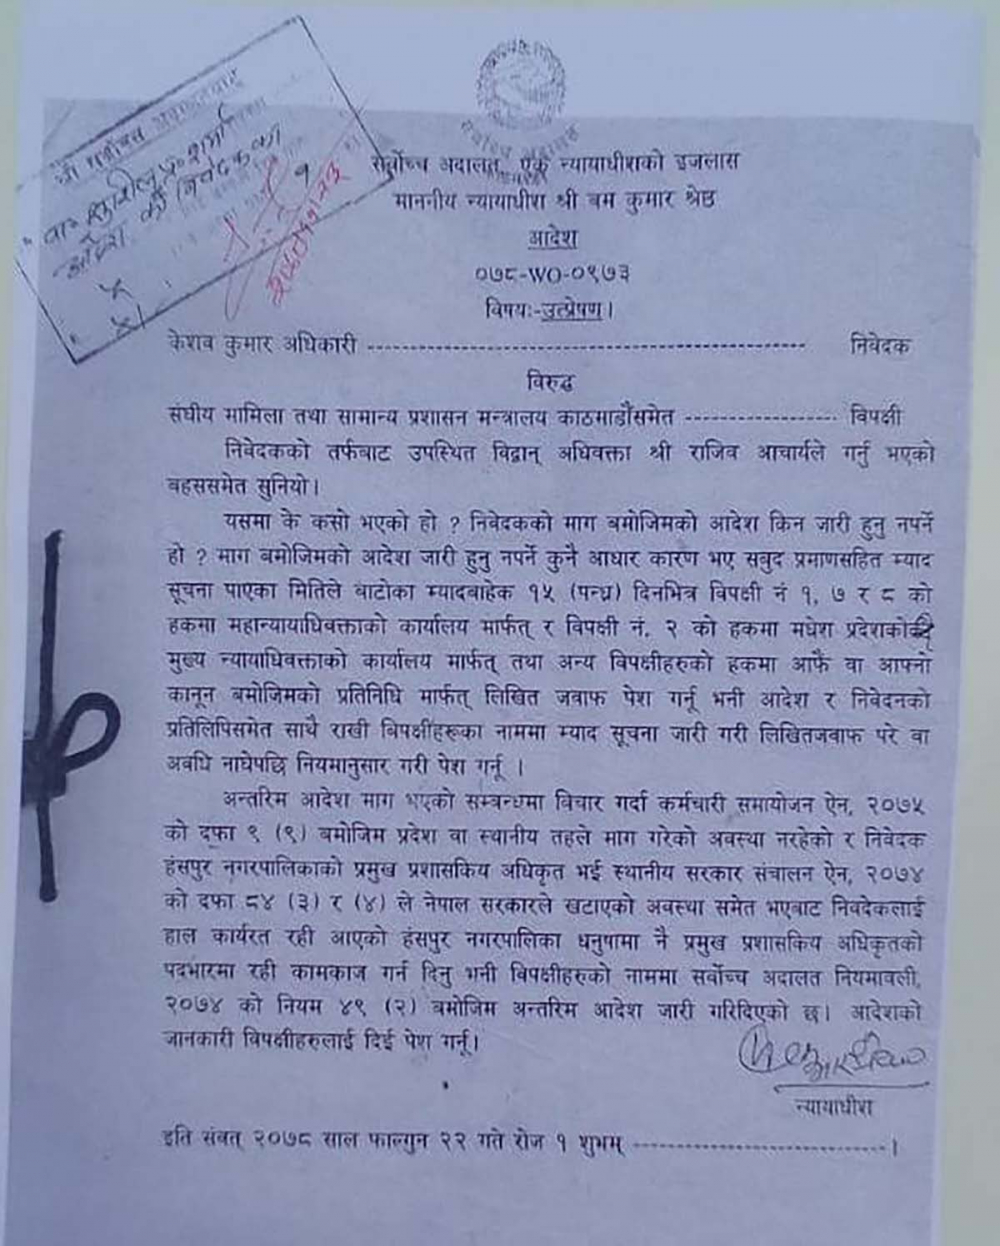 सर्वोच्च अदालत
सर्वोच्च अदालत, एक न्यायाधीशको इजलास
माननीय न्यायाधीश श्री बम कुमार श्रेष्ठ
आदेश
०७८-WO-०९७३
विषयः-उत्प्रेषण।
केशव कुमार अधिकारी ---------------------------------------------------------- निवेदक
विरुद्ध
संघीय मामिला तथा सामान्य प्रशासन मन्त्रालय काठमाडौंसमेत ------------------ विपक्षी
निवेदकको तर्फबाट उपस्थित विद्वान् अधिवक्ता श्री राजिव आचार्यले गर्नु भएको
बहससमेत सुनियो।
यसमा के कसो भएको हो ? निवेदकको माग बमोजिमको आदेश किन जारी हुनु नपर्ने
हो ? माग बमोजिमको आदेश जारी हुनु नपर्ने कुनै आधार कारण भए सबुद प्रमाणसहित म्याद
सूचना पाएका मितिले बाटोका म्यादबाहेक १५ (पन्ध्र) दिनभित्र विपक्षी नं १, ७ र ८ को
हकमा महान्यायाधिवक्ताको कार्यालय मार्फत् र विपक्षी नं. २ को हकमा मधेश प्रदेशको
मुख्य न्यायाधिवक्ताको कार्यालय मार्फत् तथा अन्य विपक्षीहरुको हकमा आफै वा आफ्नो
कानून बमोजिमको प्रतिनिधि मार्फत् लिखित जवाफ पेश गर्नू भनी आदेश र निवेदनको
प्रतिलिपिसमेत साथै राखी बिपक्षीहरूका नाममा म्याद सूचना जारी गरी लिखितजवाफ परे वा
अवधि नाघेपछि नियमानुसार गरी पेश गर्नू ।
अन्तरिम आदेश माग भएको सम्बन्धमा विचार गर्दा कर्मचारी समायोजन ऐन, २०७५
को दफा ९ (९) बमोजिम प्रदेश वा स्थानीय तहले माग गरेको अवस्था नरहेको र निवेदक
हंसपुर नगरपालिकाको प्रमुख प्रशासकिय अधिकृत भई स्थानीय सरकार संचालन ऐन, २०७४
को दफा ८४ (३) र (४) ले नेपाल सरकारले खटाएको अवस्था समेत भएबाट निवदेकलाई
हाल कार्यरत रही आएको हंसपुर नगरपालिका धनुषामा नै प्रमुख प्रशासकिय अधिकृतको
पदभारमा रही कामकाज गर्न दिनु भनी विपक्षीहरुको नाममा सर्वोच्च अदालत नियमावली,
२०७४ को नियम ४९ (२) बमोजिम अन्तरिम आदेश जारी गरिदिएको छ। आदेशको
जानकारी विपक्षीहरुलाई दिई पेश गर्नू।
न्यायाधीश
इति संवत् २०७८ साल फाल्गुन २२ गते रोज १ शुभम् ----------------------------------।